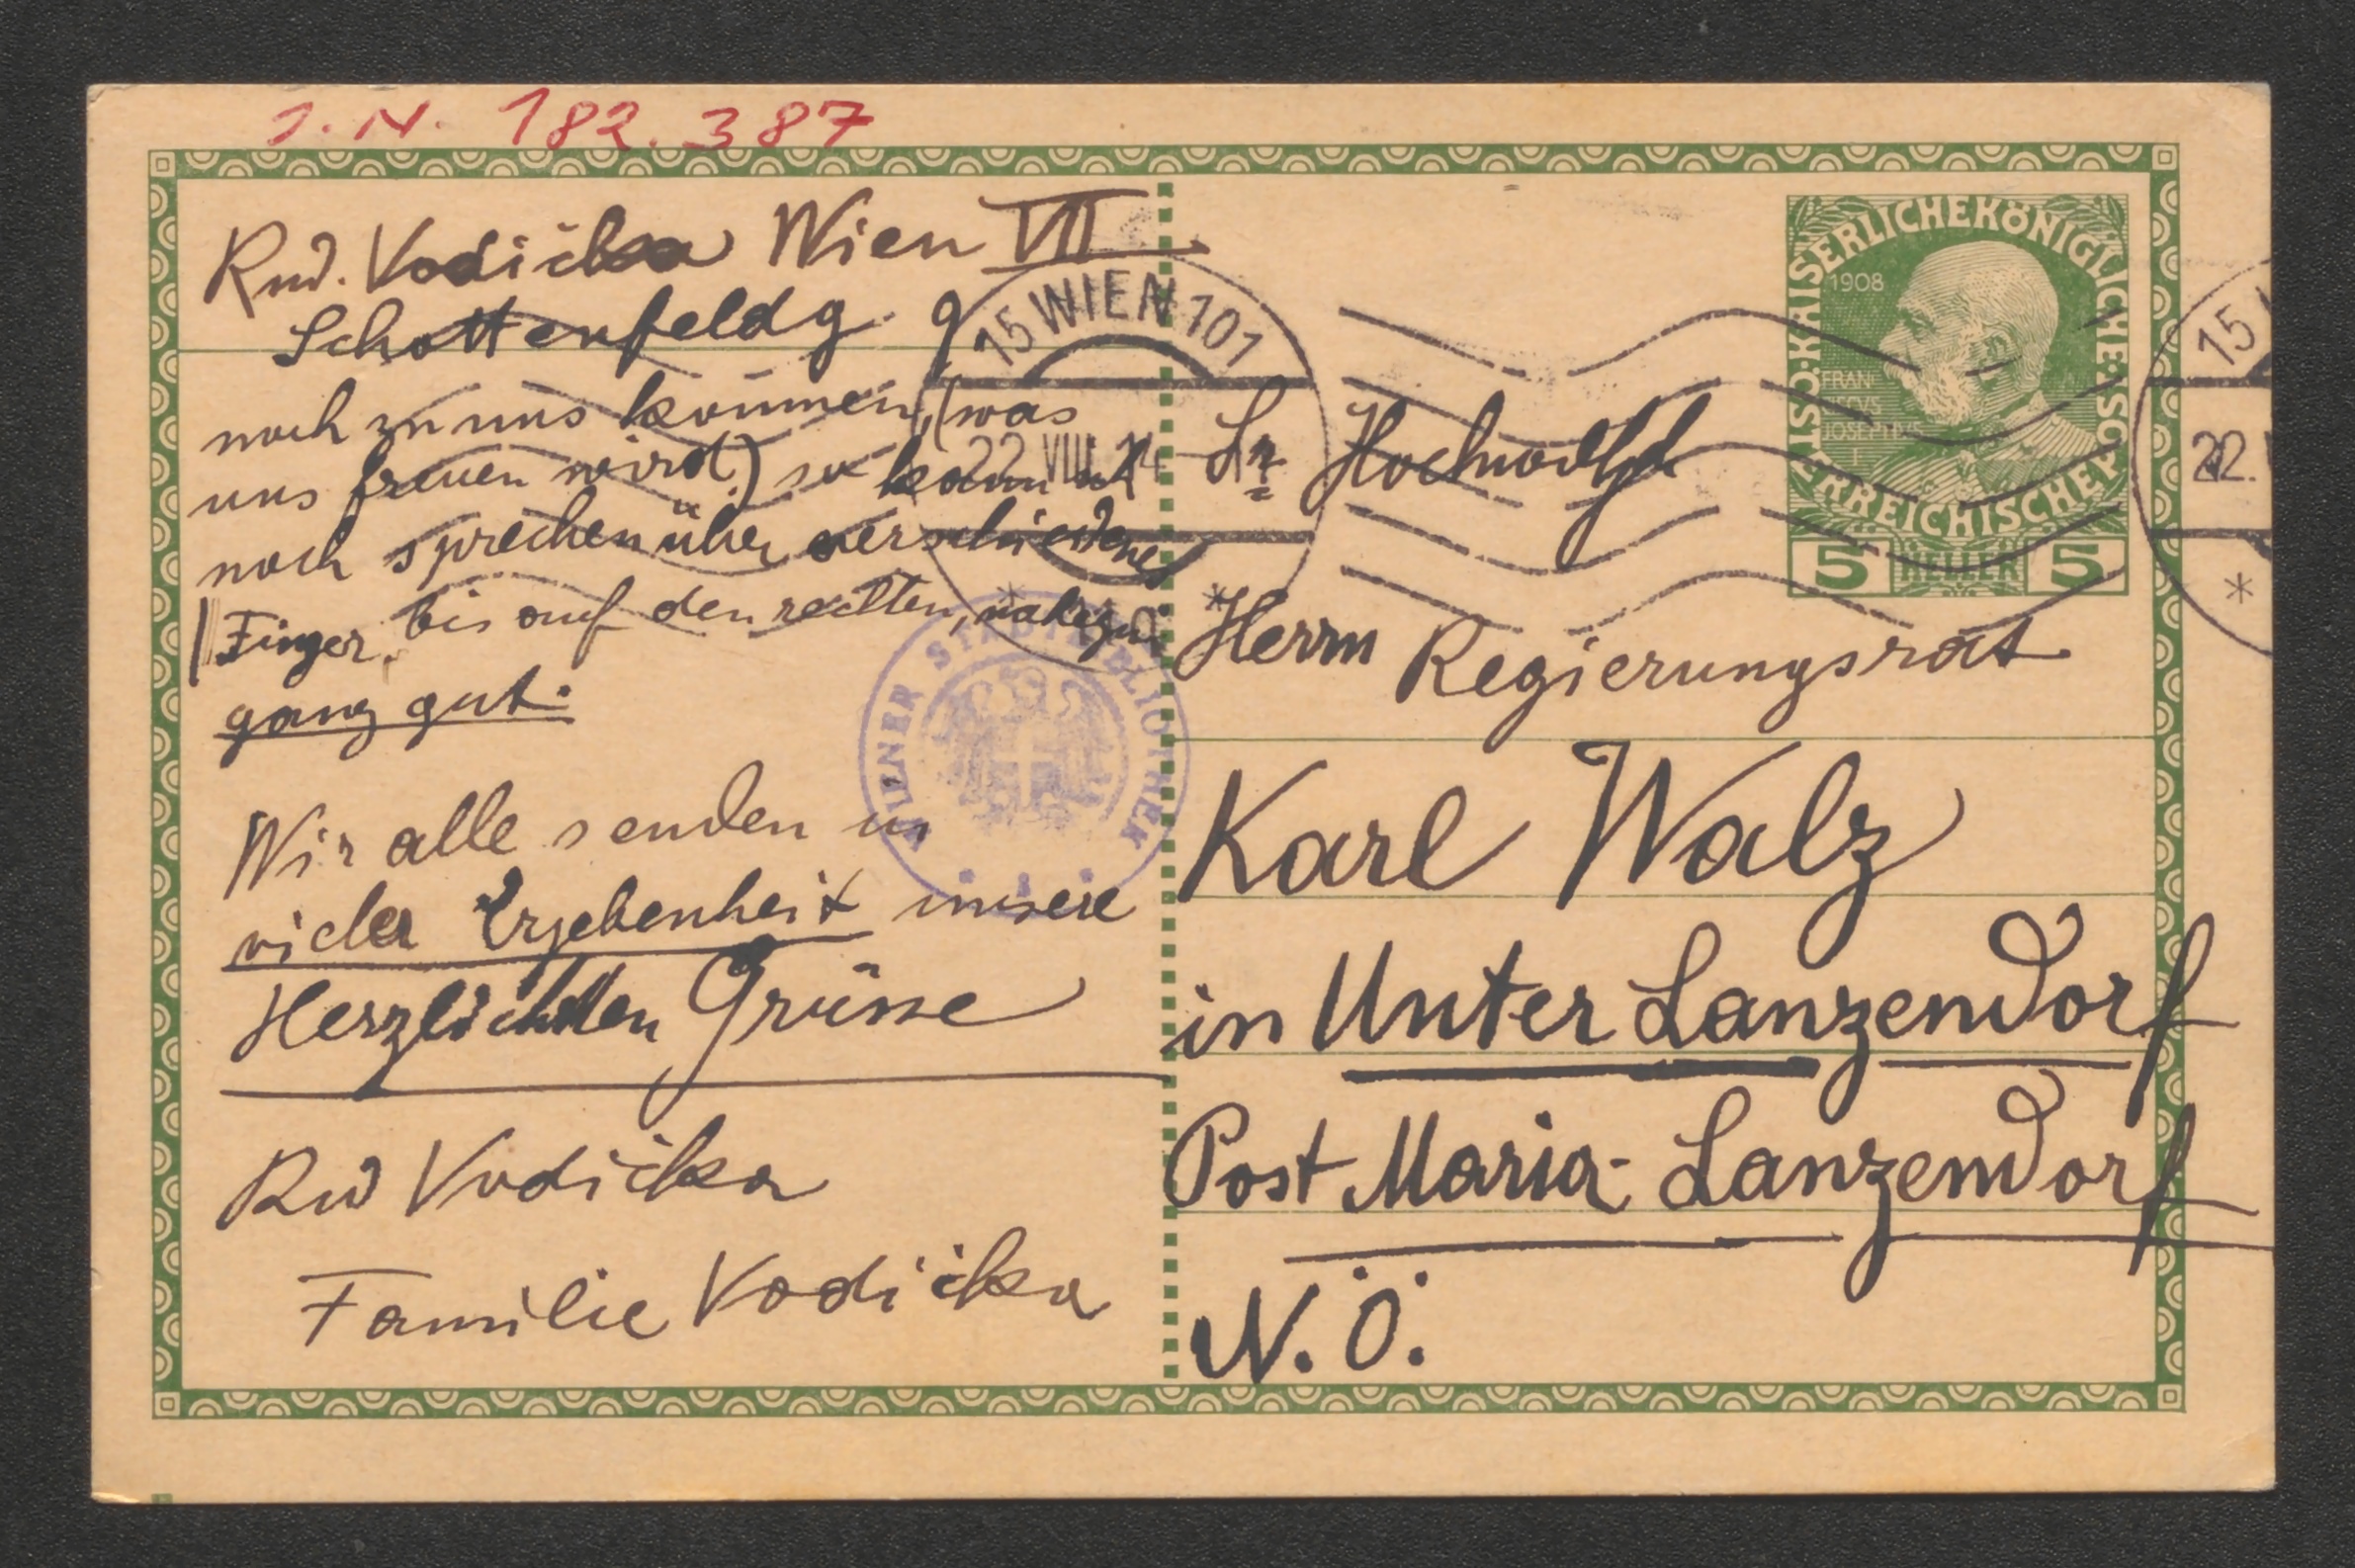 J. N. 182.387
Rud. Vodička Wien VII
Schottenfeldg. 9
noch zu uns kommen, (was
uns freuen wird) so kann ich
noch sprechen über verschiedenes
Finger bis auf den rechten, nahezu
ganz gut.
Wir alle senden in
vieler Ergebenheit unsere
Herzlichsten Grüsse
Rud Vodička
Familie Vodička
15 WIEN 101
22. VIII. 14
WIENER STADTBIBLIOTHEK
KAISERLICHE KÖNIGLICHE ÖSTERREICHISCHE POST
1908
FRANCISCVS
JOSEPHVS
I
5 HELLER 5
15
22.
Sr Hochwohlg
Herrn Regierungsrat
Karl Walz
in Unter Lanzendorf
Post Maria-Lanzendorf
N. Ö.